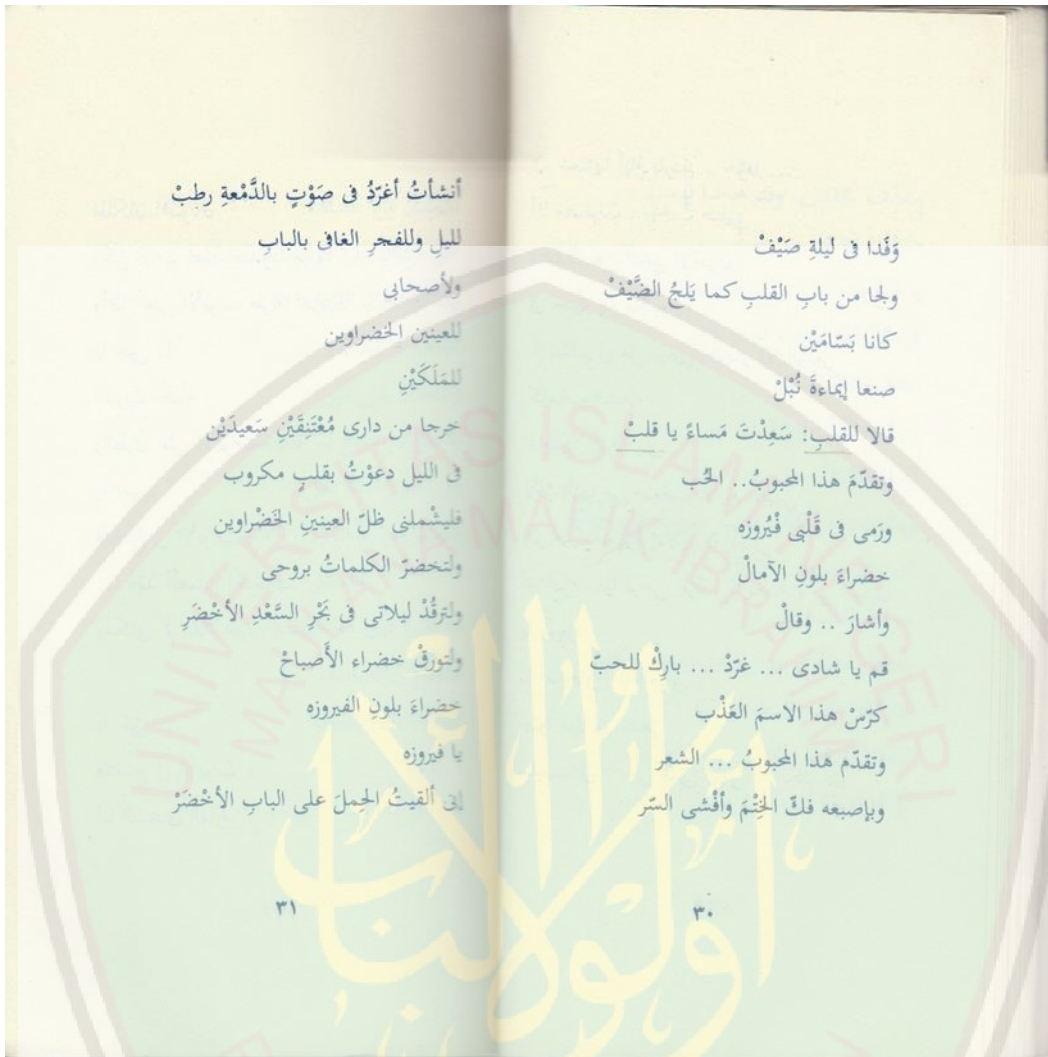 وَفَدا فى ليلةِ صَيْفْ
ولجا من بابِ القلبِ كما يَلجُ الضَّيْفْ
كانا بَسّامَيْن
صنعا إيماءةَ نُبْلْ
قالا للقلبِ: سَعِدْتَ مَساءً يا قلبْ
وتقدّمَ هذا المحبوبُ.. الحُب
ورَمى فى قَلْبى فْيُروزه
خضراءَ بلونِ الآمالْ
وأشارَ .. وقالْ
قم يا شادى ... غرّدْ ... باركْ للحبّ
كرّسْ هذا الاسمَ العَذْب
وتقدّم هذا المحبوبُ ... الشعر
وبإصبعه فكّ الخِتْمَ وأفْشى السّر
٣٠
أنشأتُ أغرّدُ فى صَوْتٍ بالدَّمْعةِ رطبْ
لليلِ وللفجرِ الغافى بالبابِ
ولأصحابى
للعينين الخضراوين
للمَلَكَيْنِ
خرجا من دارى مُعْتَنِقَيْنِ سَعيدَيْن
فى الليل دعوْتُ بقلبٍ مكروب
فليشْملنى ظلّ العينينِ الخَضْراوين
ولتخضرّ الكلماتُ بروحى
ولترقُدْ ليلاتى فى بَحْرِ السَّعْدِ الأخْضَرِ
ولتورقْ خضراء الأَصباحْ
خضراءَ بلونِ الفيروزه
يا فيروزه
إنى ألقيتُ الحِملَ على البابِ الأخْضَرْ
٣١
UNIVERSITAS ISLAM NEGERI
MAULANA MALIK IBRAHIM
أولو الألباب